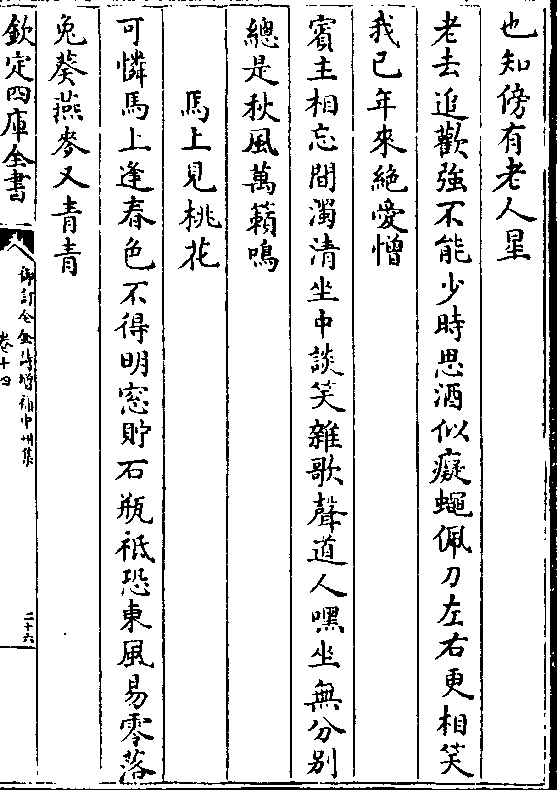 也知傍有老人星
老去追歡強不能少時思酒似癡蠅佩刀左右更相笑
我已年來絶愛憎
賓主相忘間濁清坐中談笑雜歌聲道人嘿坐無分别
總是秋風萬籟鳴
馬上見桃花
可憐馬上逢春色不得明窓貯石瓶袛恐東風易零落
兔葵燕麥又青青
欽定四庫全書
御訂全金詩增補中州集
卷十四
二十六